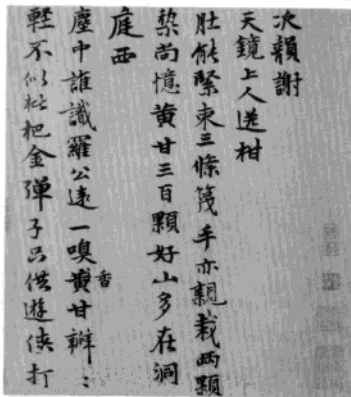 次韻謝
天鏡上人送柑
肚能緊束三條篾手亦親栽兩顆
棃尚憶黄甘三百顆好山多在洞
庭西
塵中誰識羅公遠一嗅黄甘香辧〻
輕不似枇杷金彈子只供遊俠打